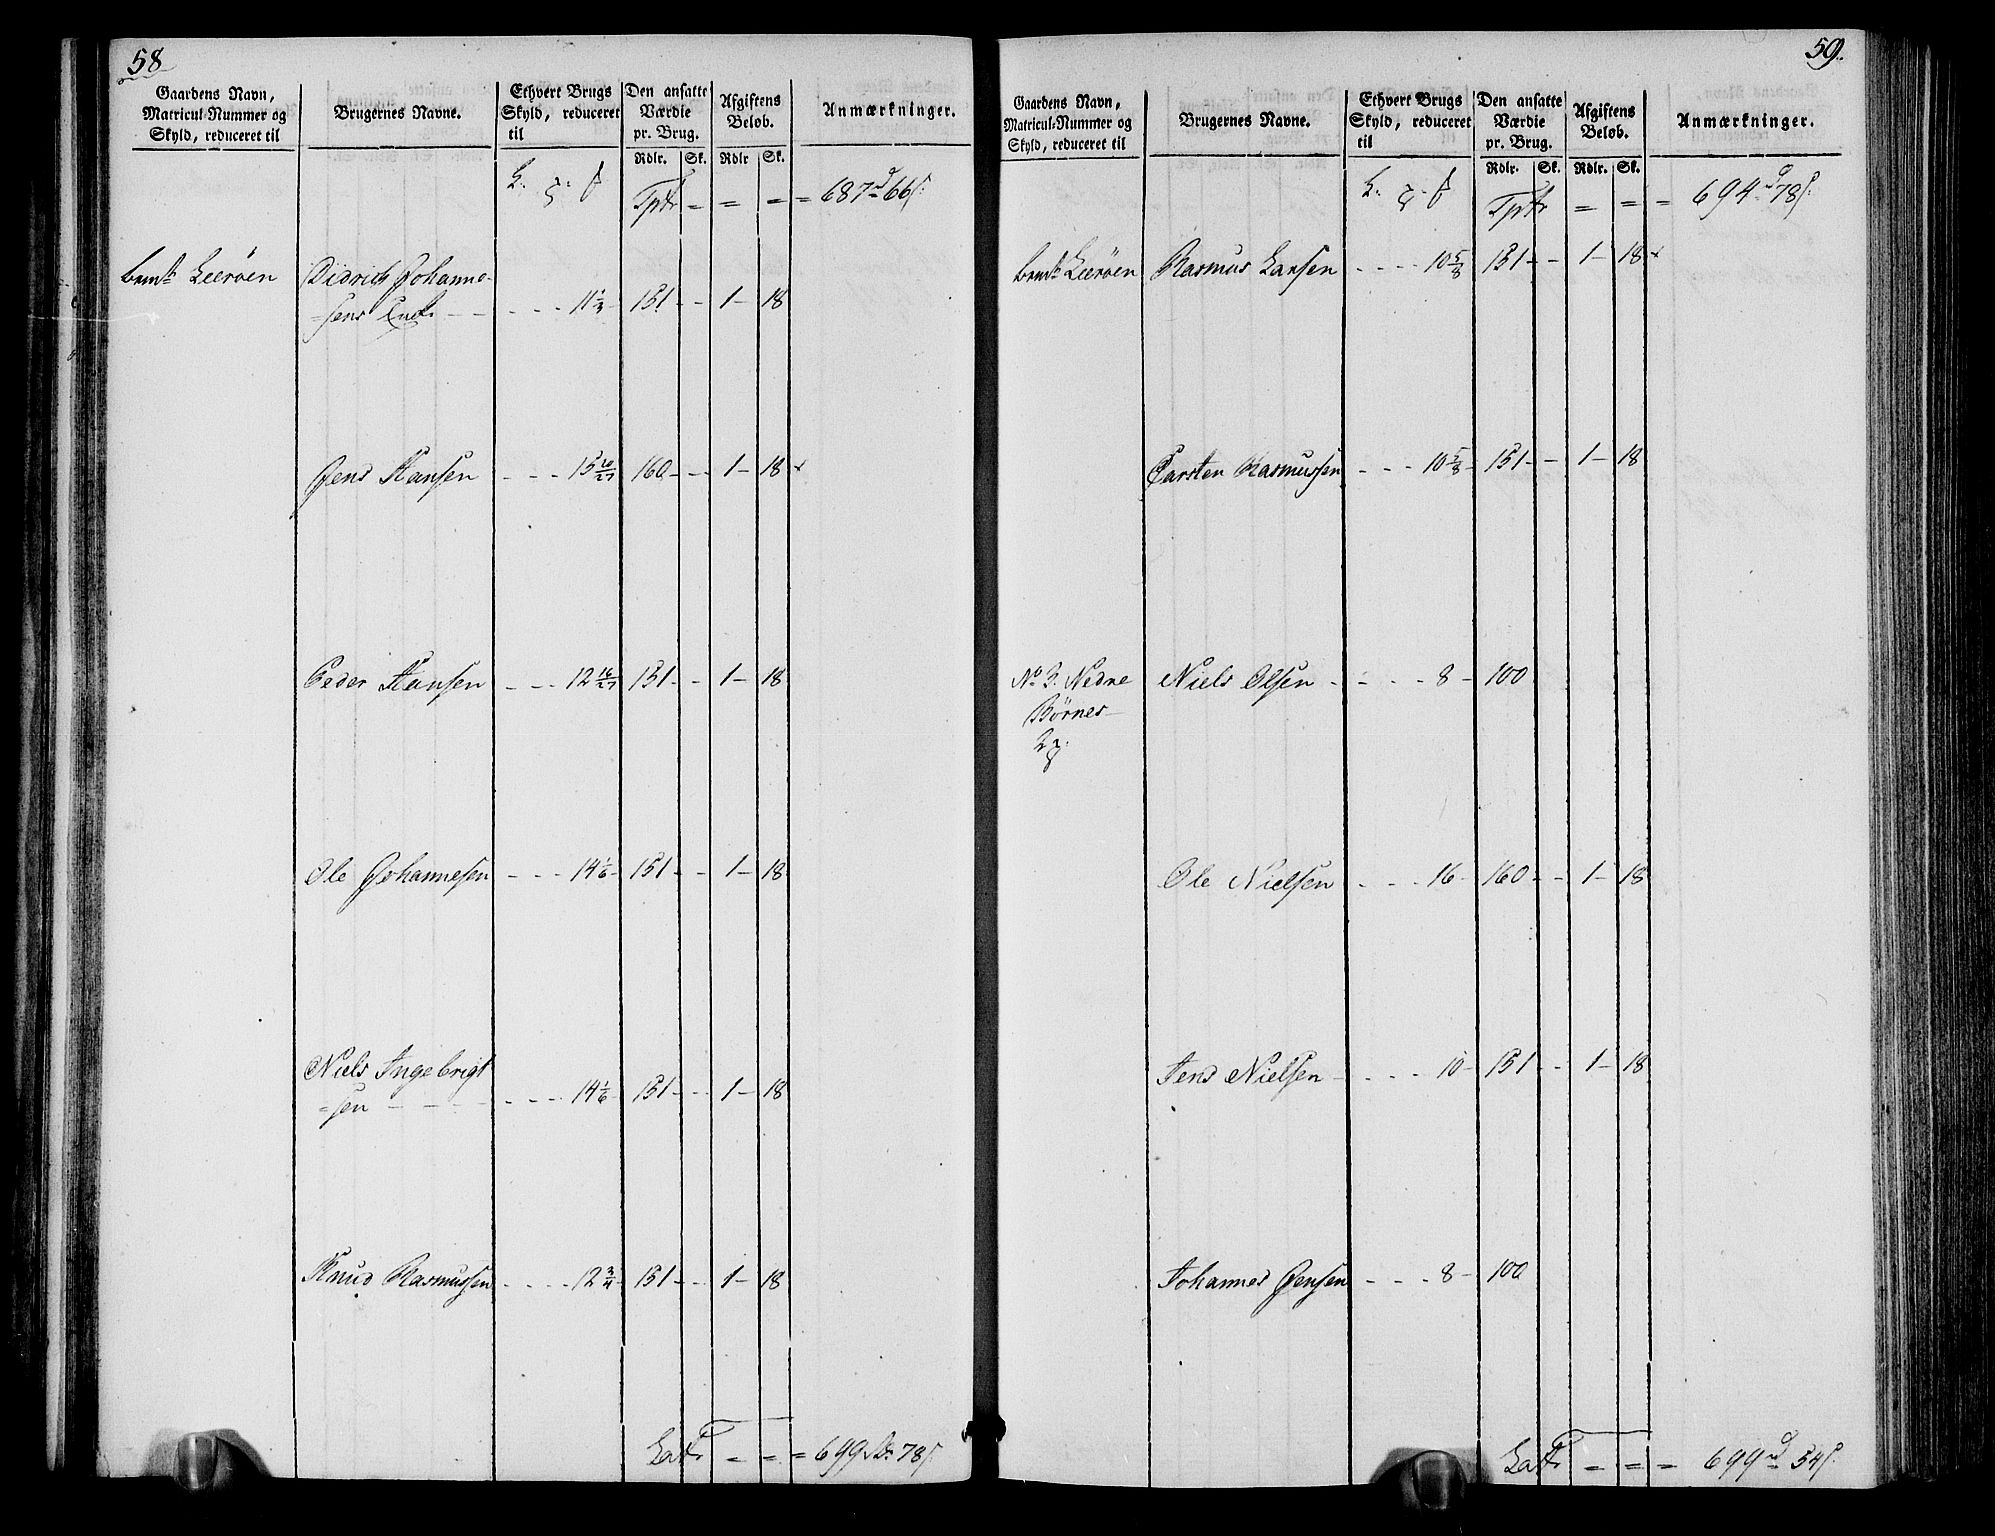 58
Gaardens Navn,
Matricul-Nummer og
Skyld, reduceret til
Brugernes Navne.
Ethvert Brugs
Skyld, reduceret
til
Den ansatte
Værdie
pr. Brug.
Rdlr. Sk.
Afgiftens
Beløb.
Rdlr Sk.
Anmærkninger.
Tptr = = = = 687 66
Leerøen Didrich Johanne-
=sens - - - - - 11 151 - - 1 - 18
Jens Hansen - - - 15 20/27 160 - - 1 - 18
Peder Hansen - - - 12 16/27 151 - - 1 - 18
Ole Johannesen - - - 14 1/6 151 - - 1 - 18
Niels Ingebrigt
=sen - - - - - - 14 1/6 151 - - 1 - 18
Knud Rasmussen - - - - 12 3/4 151 - - 1 - 18
Latr = = = = 699 78
59.
Gaardens Navn,
Matricul-Nummer og
Skyld, reduceret til
Brugernes Navne.
Ethvert Brugs
Skyld, reduceret
til
Den ansatte
Værdie
pr. Brug.
Rdlr. Sk.
Afgiftens
Beløb.
Rdlr. Sk.
Anmærkninger.
Tptr = = = 694 78
Leerøen Rasmus Larsen - - - - 10 5/8 151 - - 1 - 18
Carsten Rasmussen - - - 10 5/8 151 - - 1 - 18
No 3. Nedre Niels Olsen - - - - 8 - 100
Børnes-
Ole Nielsen - - - 16 - 160 - - 1 - 18
Jens Nielsen - - - - 10 - 151 - - 1 - 18
Johannes Jensen - - - 8 - 100
Latr = = = 699 54